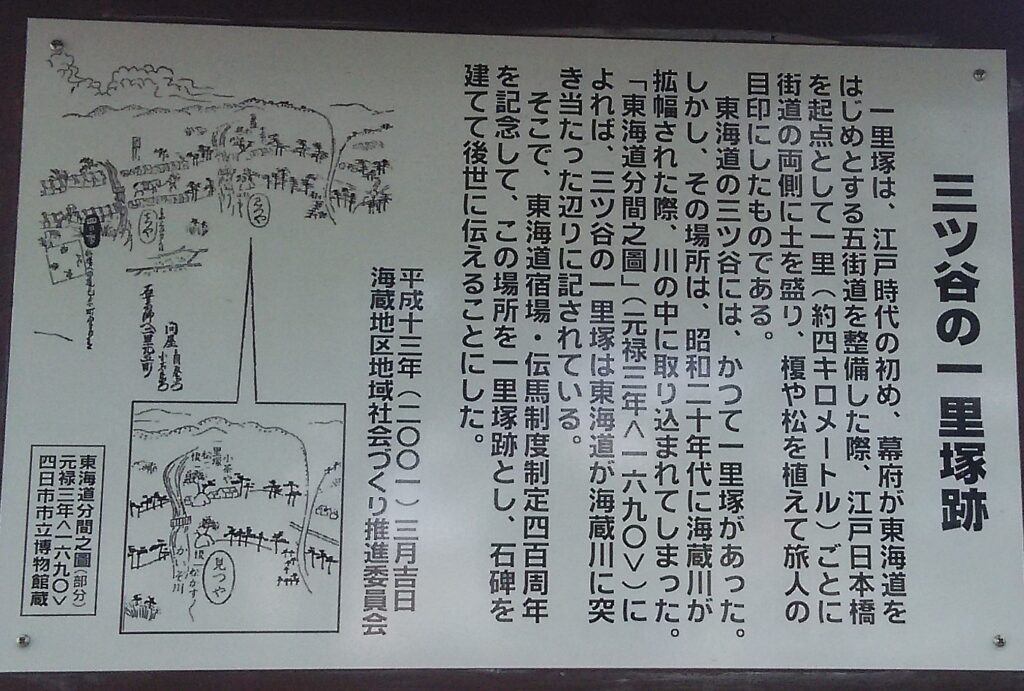 三ツ谷の一里塚跡
一里塚は、江戸時代の初め、幕府が東海道を
はじめとする五街道を整備した際、江戸日本橋
を起点として一里（約四キロメートル）ごとに
街道の両側に土を盛り、榎や松を植えて旅人の
目印にしたものである。
東海道の三ツ谷には、かつて一里塚があった。
しかし、その場所は、昭和二十年代に海蔵川が
拡幅された際、川の中に取り込まれてしまった。
「東海道分間之圖」（元禄三年＜一六九〇＞）に
よれば、三ツ谷の一里塚は東海道が海蔵川に突
き当たった辺りに記されている。
そこで、東海道宿場・伝馬制度制定四百周年
を記念して、この場所を一里塚跡とし、石碑を
建てて後世に伝えることにした。
平成十三年（二〇〇一）三月吉日
海蔵地区地域社会づくり推進委員会
見つや
東海道分間之圖（部分）
元禄三年＜一六九〇＞
四日市市立博物館蔵